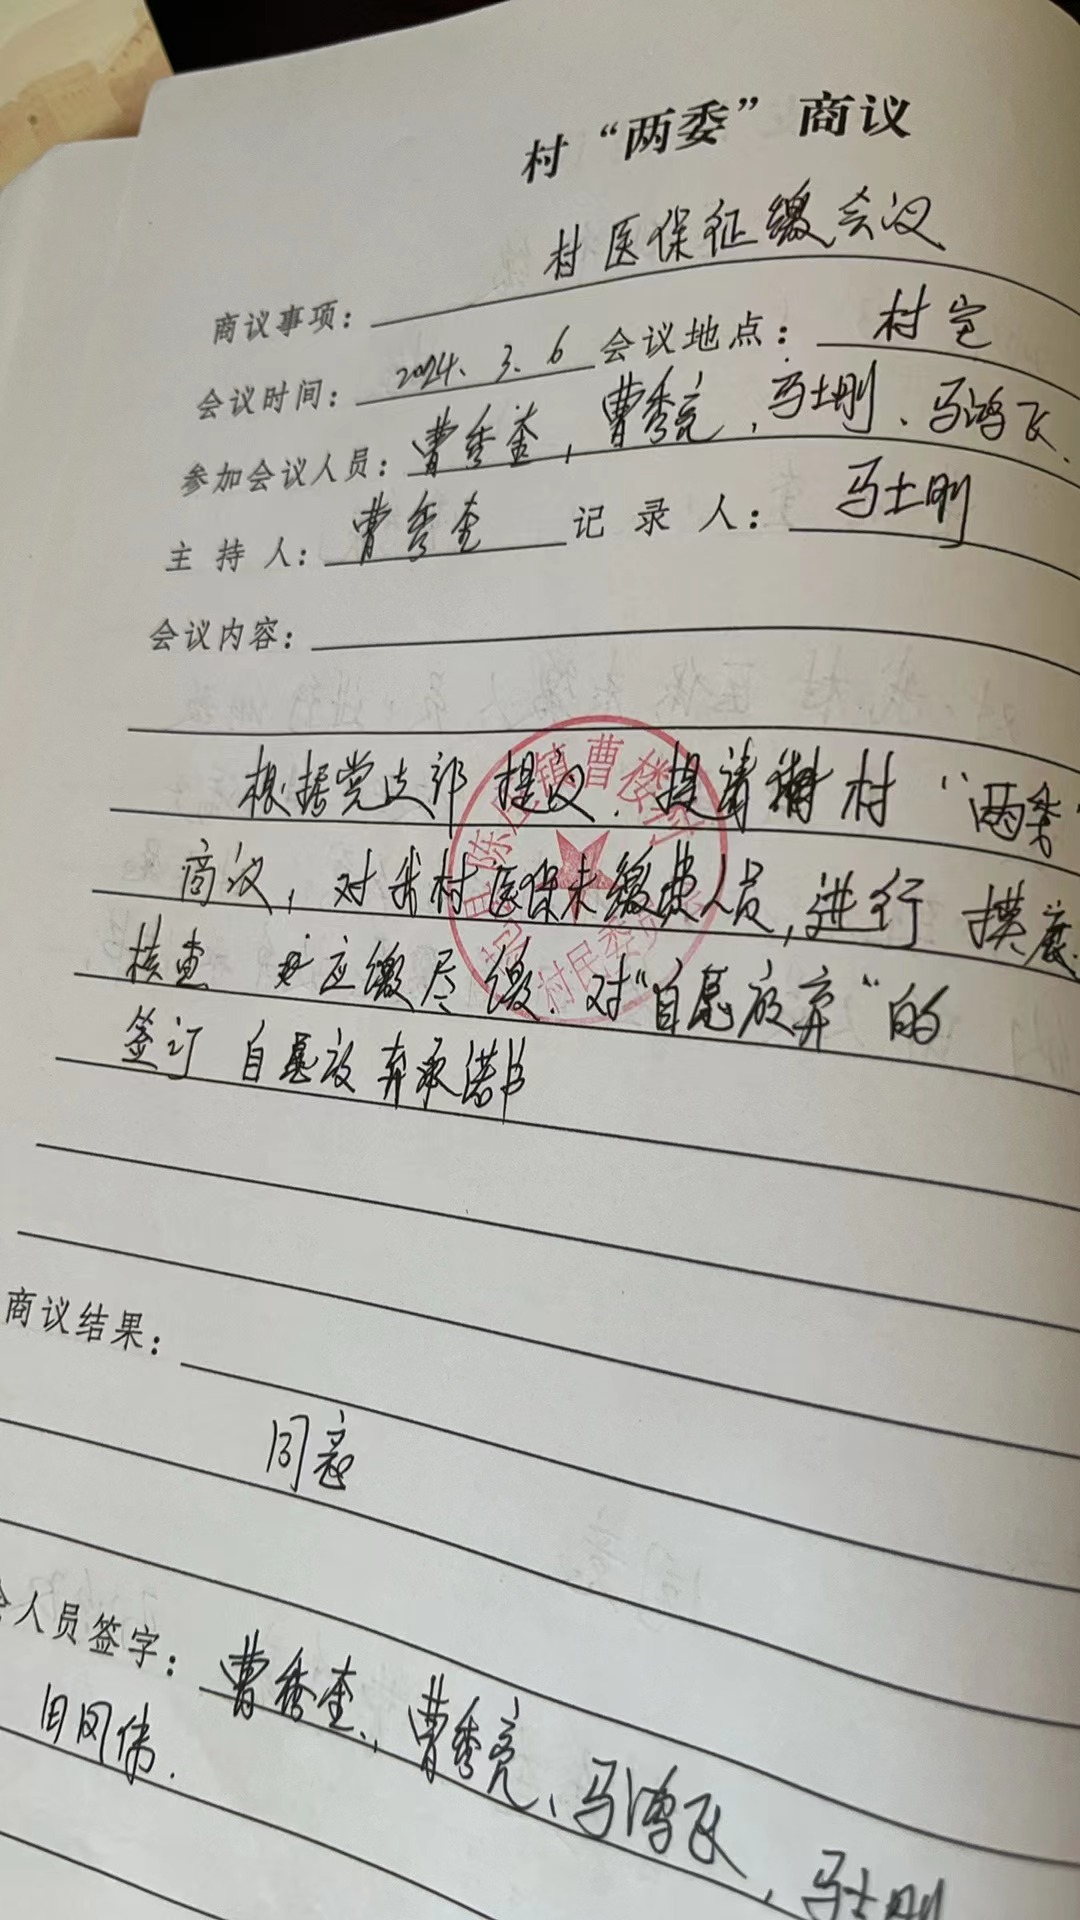 村“两委”商议
商议事项：村医保征缴会议
会议时间：2024.3.6 会议地点：村室
参加会议人员：曹秀奎，曹秀亮，马士刚、马鸿飞.
主持人：曹秀奎 记录人：马士刚
会议内容：
根据党支部提议.提请 村“两委”
商议，对我村医保未缴费人员,进行摸底
核查 应缴尽缴.对“自愿放弃”的
签订自愿放弃承诺书
镇曹楼村
村民委员
商议结果：
同意
会人员签字：曹秀奎、曹秀亮、马鸿飞，马士刚
田风伟.